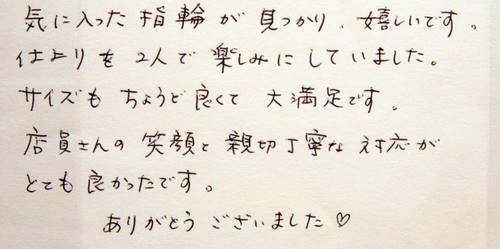 気に入った指輪が見つかり、嬉しいです。
仕上りを2人で楽しみにしていました。
サイズもちょうど良くて大満足です。
店員さんの笑顔と親切丁寧な対応が
とても良かったです。
ありがとうございました♡